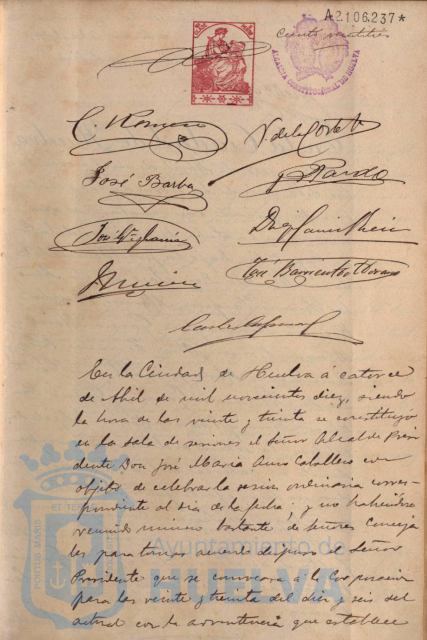 A2106237*
Ciento veintitres
ALCALDIA CONSTITUCIONAL DE HUELVA
C. Romero
V. de la Corte
José Barba
y Pardo
José Mª
José Barrientos
En la Ciudad de Huelva á catorce
de Abril de mil novecientos diez, siendo
la hora de las veinte y treinta se constituyo
en la sala de sesiones el Señor Alcalde Presi
dente Don José Maria Amo Caballero con
objeto de celebrar la sesion ordinaria corres-
pondiente al dia de la fecha; y no habiendose
reunido numero bastante de señores Conceja
les para tomar acuerdo dispuso el Señor
Presidente que se convocara á la Corporacion
para las veinte y treinta del dia diez y seis del
actual con la advertencia que establece
PORTUS MARIS ET TERRAE
Ayuntamiento de
HUELVA